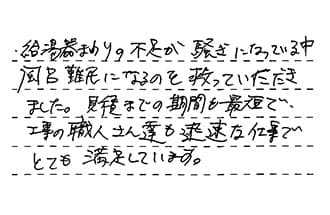 ・給湯器まわりの不足が騒ぎになっている中
風呂難民になるのを救っていただき
ました。見積までの期間も最短で、
工事の職人さん達も迅速な仕事で
とても満足しています。